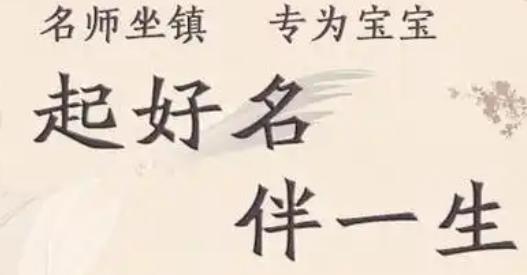 名师坐镇 专为宝宝
起好名
伴一生